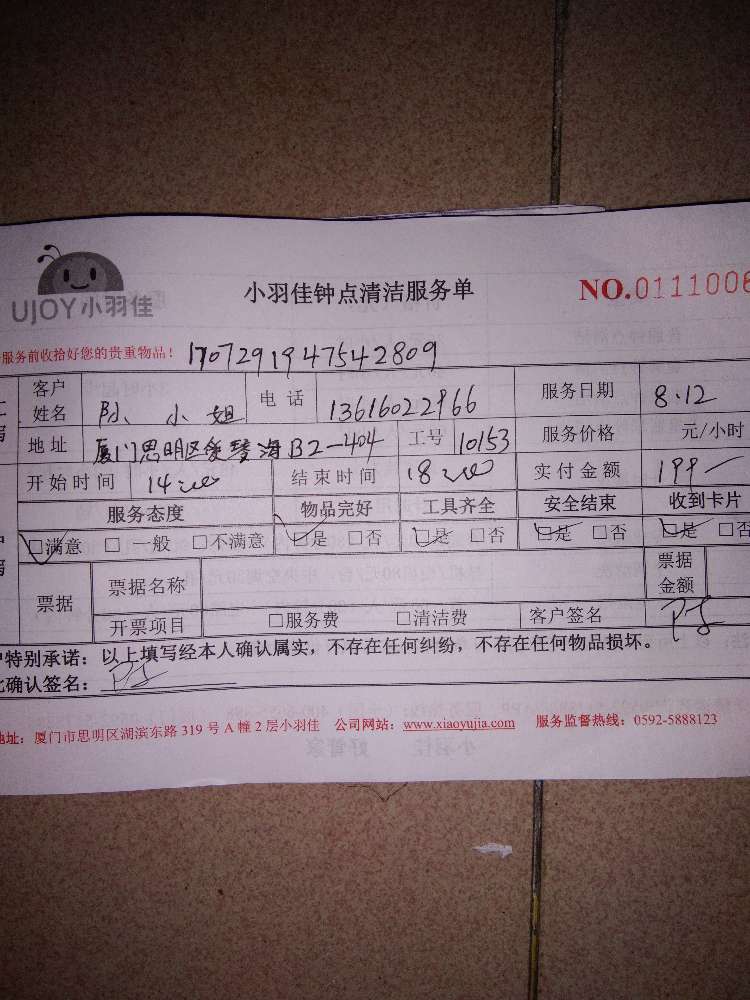 UJOY小羽佳
小羽佳钟点清洁服务单
NO.0111006
服务前收拾好您的贵重物品! 1707291947542809
客户姓名 孙 小姐 电话 13616022966 服务日期 8.12
地址 厦门思明区爱琴海B2-404 工号 10153 服务价格 元/小时
开始时间 14:00 结束时间 18:00 实付金额 199
服务态度 物品完好 工具齐全 安全结束 收到卡片
☑满意 □一般 □不满意 ☑是 □否 ☑是 □否 ☑是 □否 ☑是 □否
票据 票据名称 票据金额
开票项目 □服务费 □清洁费 客户签名
特别承诺：以上填写经本人确认属实，不存在任何纠纷，不存在任何物品损坏。
确认签名：
地址：厦门市思明区湖滨东路 319 号 A 幢 2 层小羽佳 公司网站：www.xiaoyujia.com 服务监督热线：0592-5888123